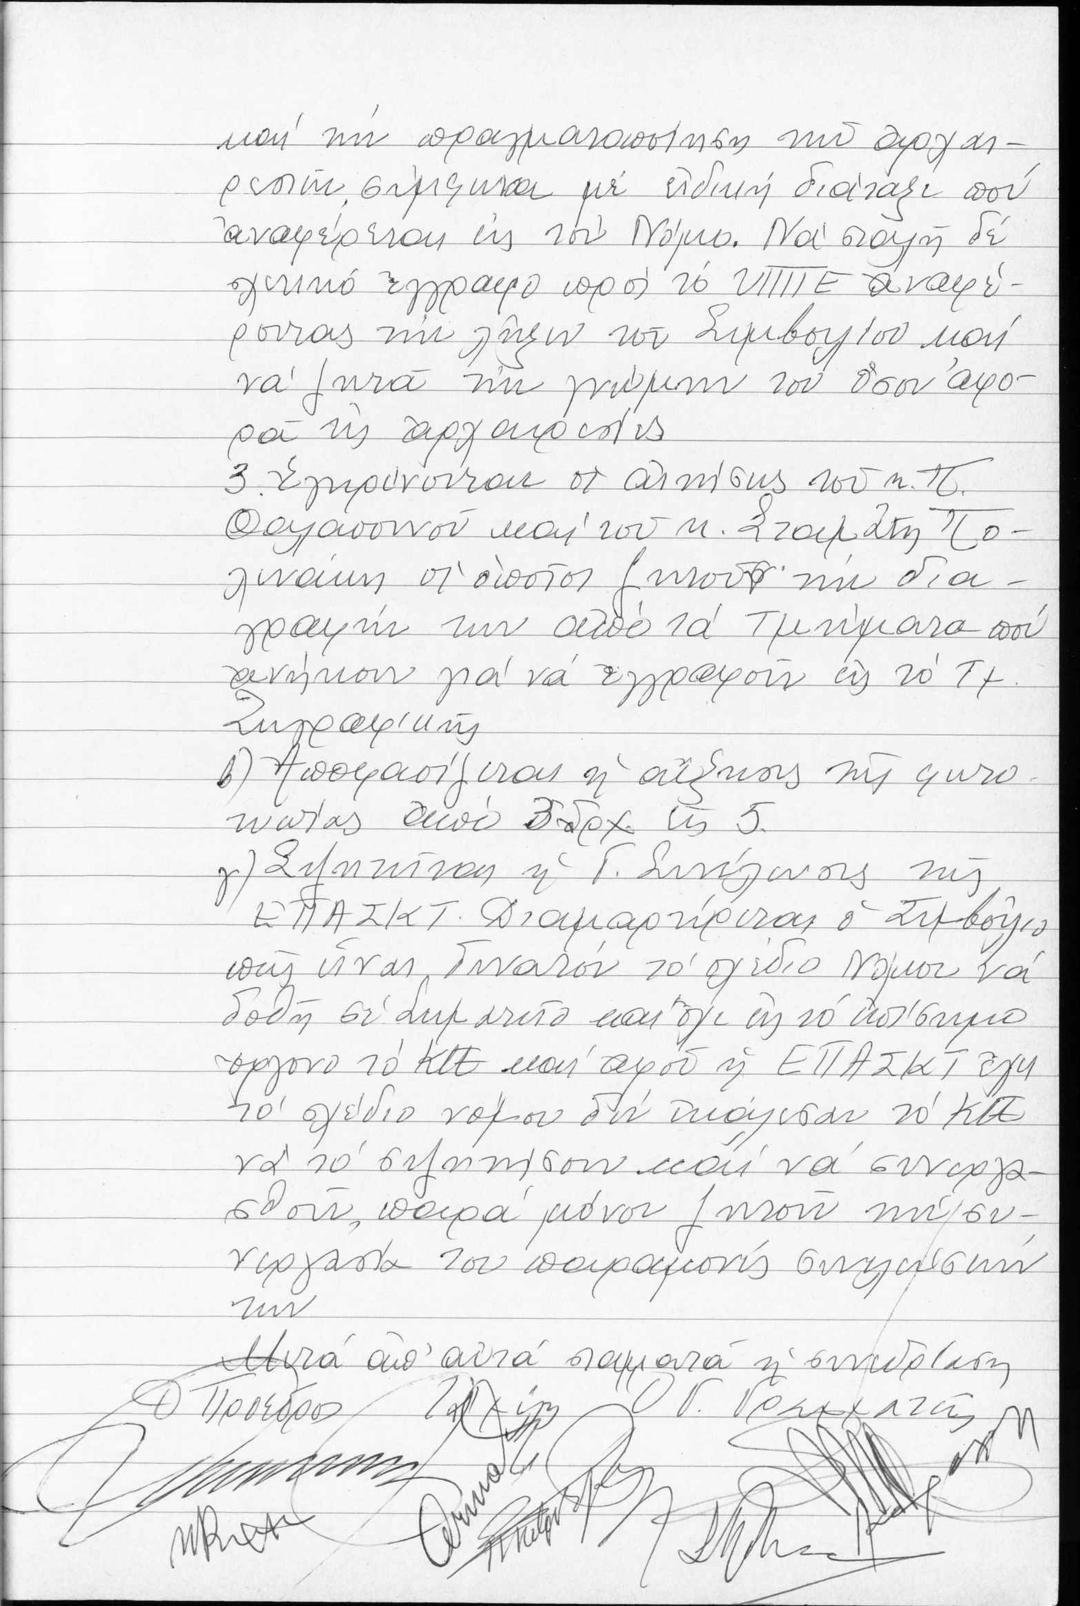 καί τήν πραγματοποίηση τῶν ἀρχαι-
ρεσιῶν, σύμφωνα μέ εἰδική διάταξι πού
ἀναφέρεται εἰς τόν Νόμο. Νά σταλῆ δέ
σχετικό ἔγγραφο πρός τό ΥΠΠΕ ἀναφέ-
ροντας τήν λῆξιν τοῦ Συμβουλίου καί
νά ζητᾶ τήν γνώμην του ὅσον ἀφο-
ρᾶ τίς ἀρχαιρεσίες
3. Ἐγκρίνονται οἱ αἰτήσεις τοῦ κ. Π.
Θαλασσινοῦ καί τοῦ κ. Σταμάτη Πο-
λινάκη οἱ ὁποῖοι ζητοῦν τήν δια-
γραφήν των ἀπό τά Τμήματα πού
ἀνήκουν γιά νά ἐγγραφοῦν εἰς τό Τμ.
Ζωγραφικῆς
β) Ἀποφασίζεται ἡ αὔξησις τῆς φωτο-
τυπίας ἀπό 3 δρχ. εἰς 5.
γ) Συζητεῖται ἡ Γ. Συνέλευσις τῆς
ΕΠΑΣΚΤ. Διαμαρτύρεται ὁ Συμβούλιο
πῶς εἶναι δυνατόν τό σχέδιο Νόμου νά
δοθῆ σέ Σωματεῖο καί ὄχι εἰς τό ἐπίσημο
ὄργανο τό ΚΤΕ καί ἀφοῦ ἡ ΕΠΑΣΚΤ ἔχει
τό σχέδιο νόμου δέν ἐκάλεσαν τό ΚΤΕ
νά τό συζητήσουν καί νά συνεργα-
σθοῦν, παρά μόνον ζητοῦν τήν συ-
νεργασία του παραμονές συνελεύσεών
των
Μετά ἀπ' αὐτά σταματᾶ ἡ συνεδρίαση
Ὁ Πρόεδρος Τά μέλη Ὁ Γ. Γραμματεύς